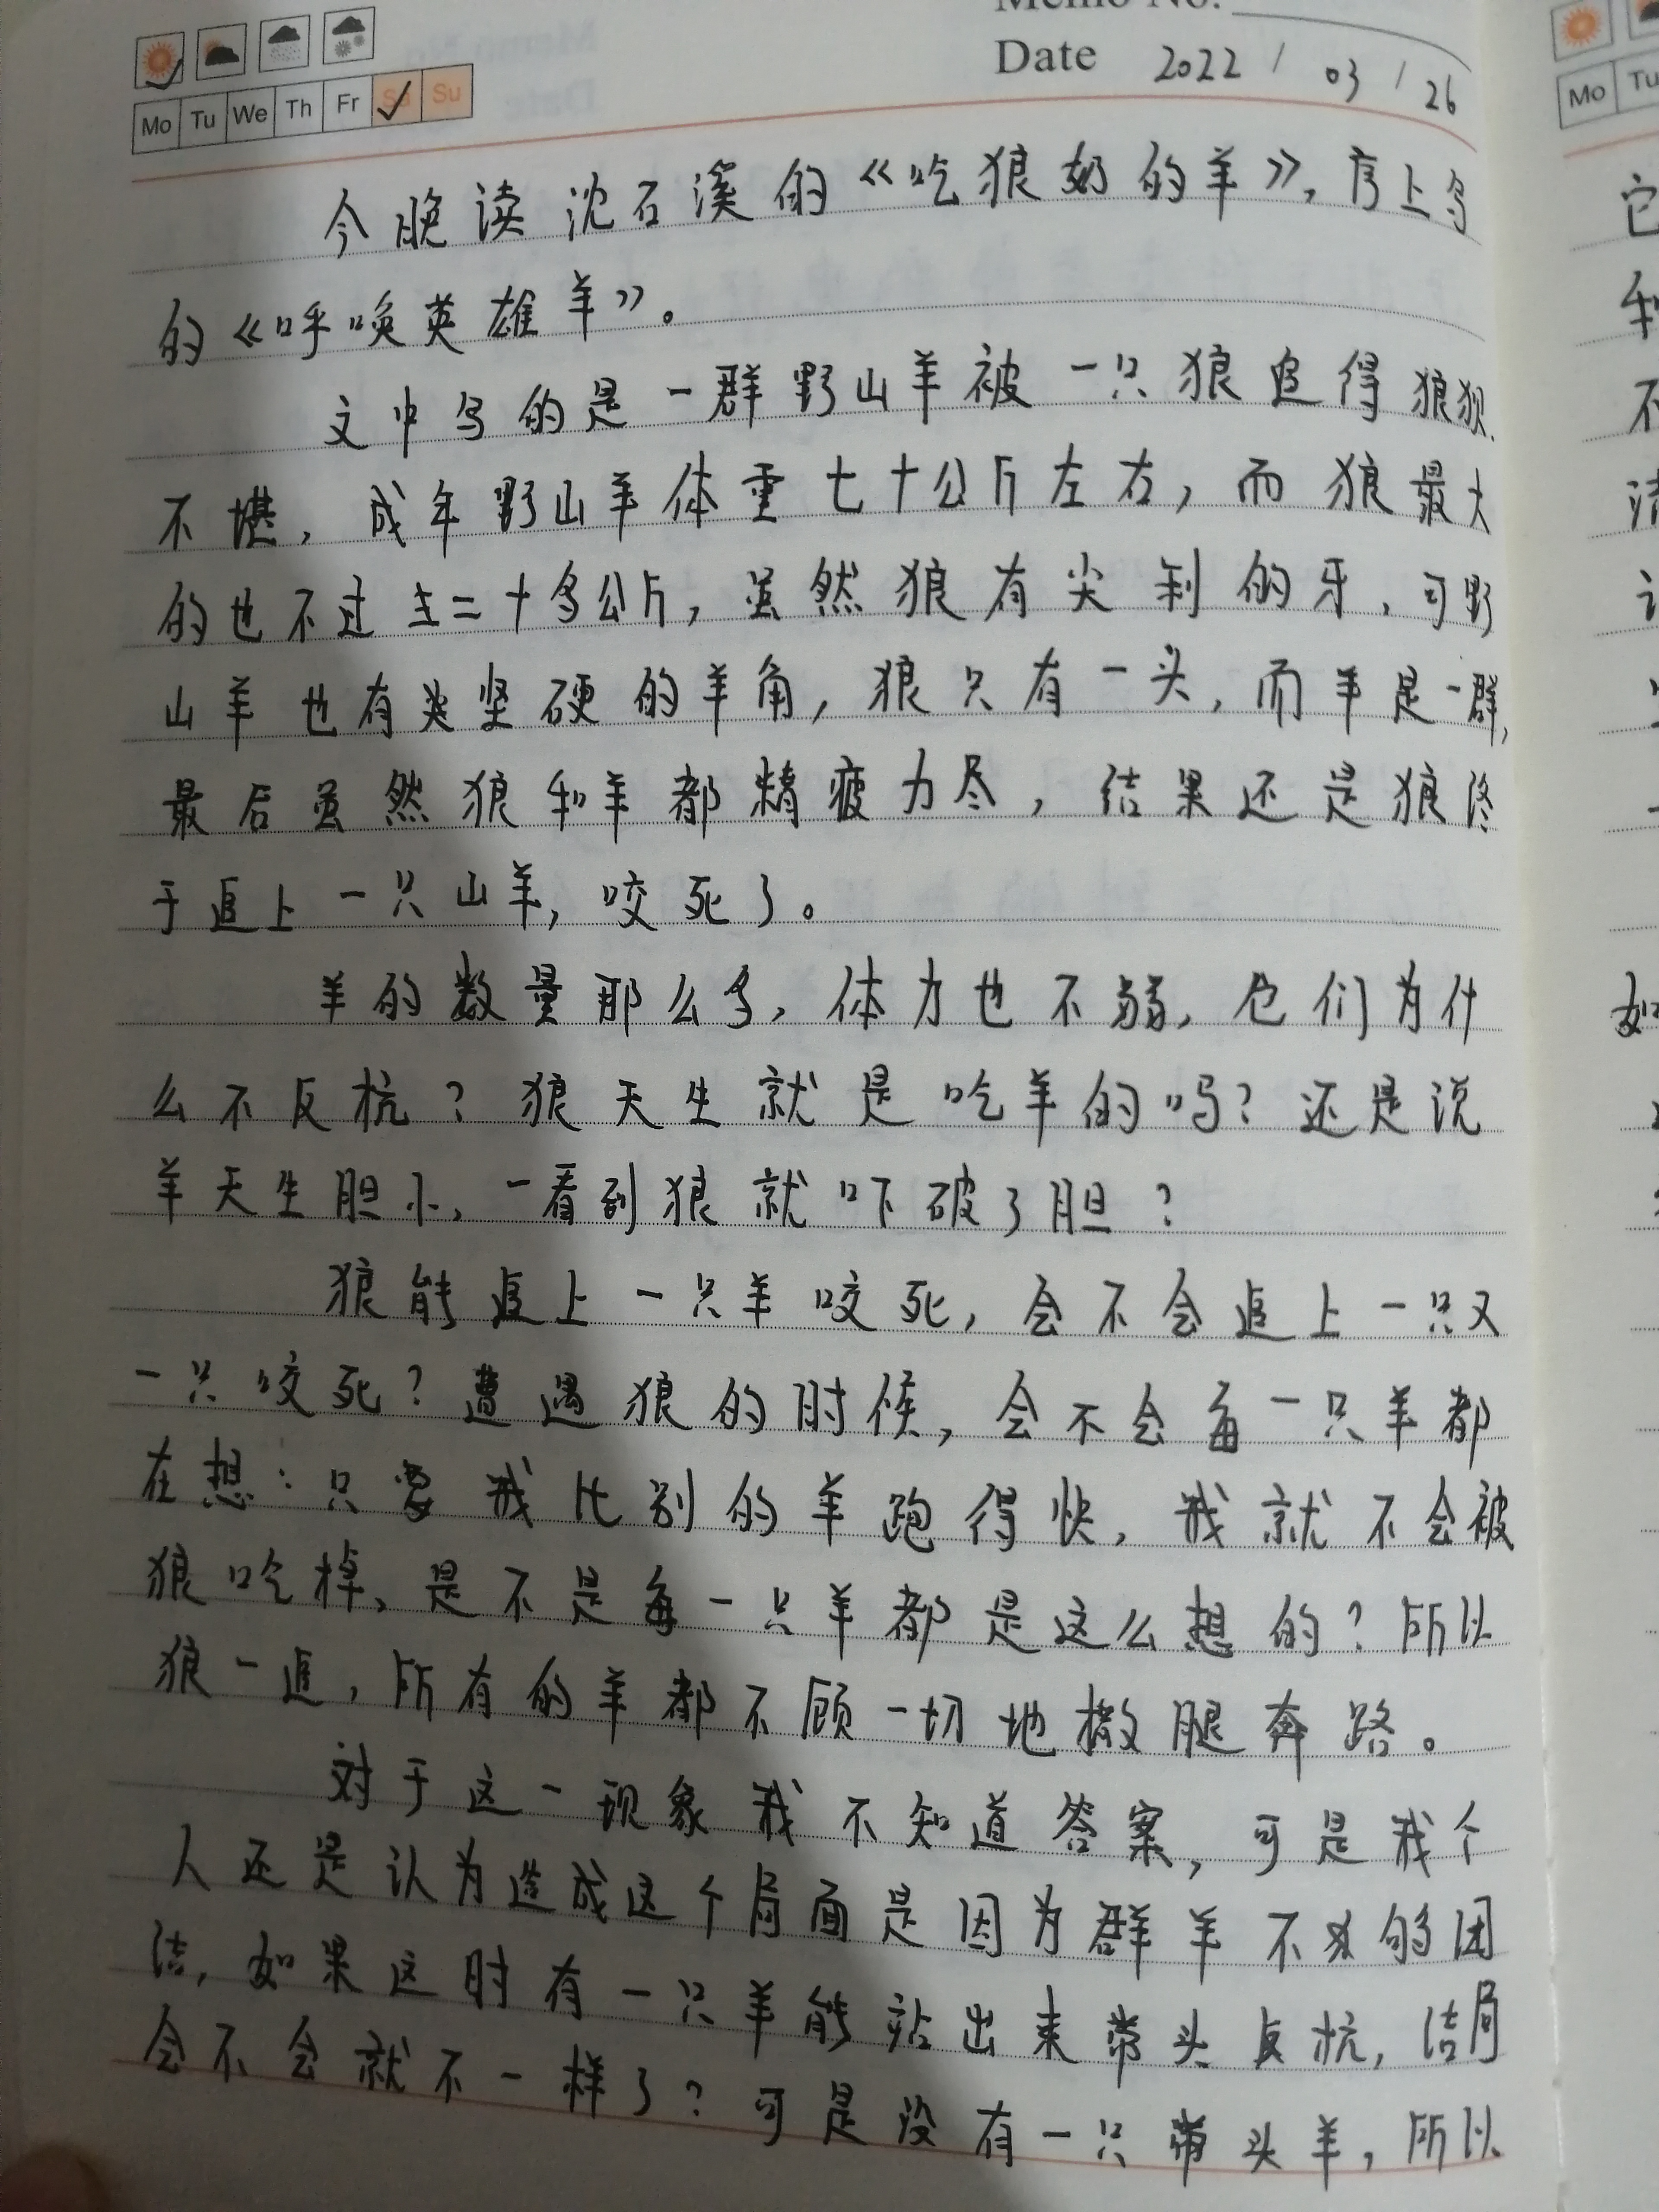 Memo No.
Date 2022 / 03 / 26
Mo Tu We Th Fr Sa Su
Mo Tu
今晚读沈石溪的《吃狼奶的羊》,序上写
的《呼唤英雄羊》。
文中写的是一群野山羊被一只狼追得狼狈
不堪,成年野山羊体重七十公斤左右,而狼最大
的也不过三十多公斤,虽然狼有尖利的牙,可野
山羊也有坚硬的羊角,狼只有一头,而羊是一群,
最后虽然狼和羊都精疲力尽,结果还是狼终
于追上一只山羊,咬死了。
羊的数量那么多,体力也不弱,它们为什
么不反抗?狼天生就是吃羊的吗?还是说
羊天生胆小,一看到狼就吓破了胆?
狼能追上一只羊咬死,会不会追上一只又
一只咬死?遭遇狼的时候,会不会每一只羊都
在想:只要我比别的羊跑得快,我就不会被
狼吃掉、是不是每一只羊都是这么想的?所以
狼一追,所有的羊都不顾一切地撒腿奔路。
对于这一现象我不知道答案,可是我个
人还是认为造成这个局面是因为群羊不够团
结,如果这时有一只羊能站出来带头反抗,结局
会不会就不一样了?可是没有一只带头羊,所以